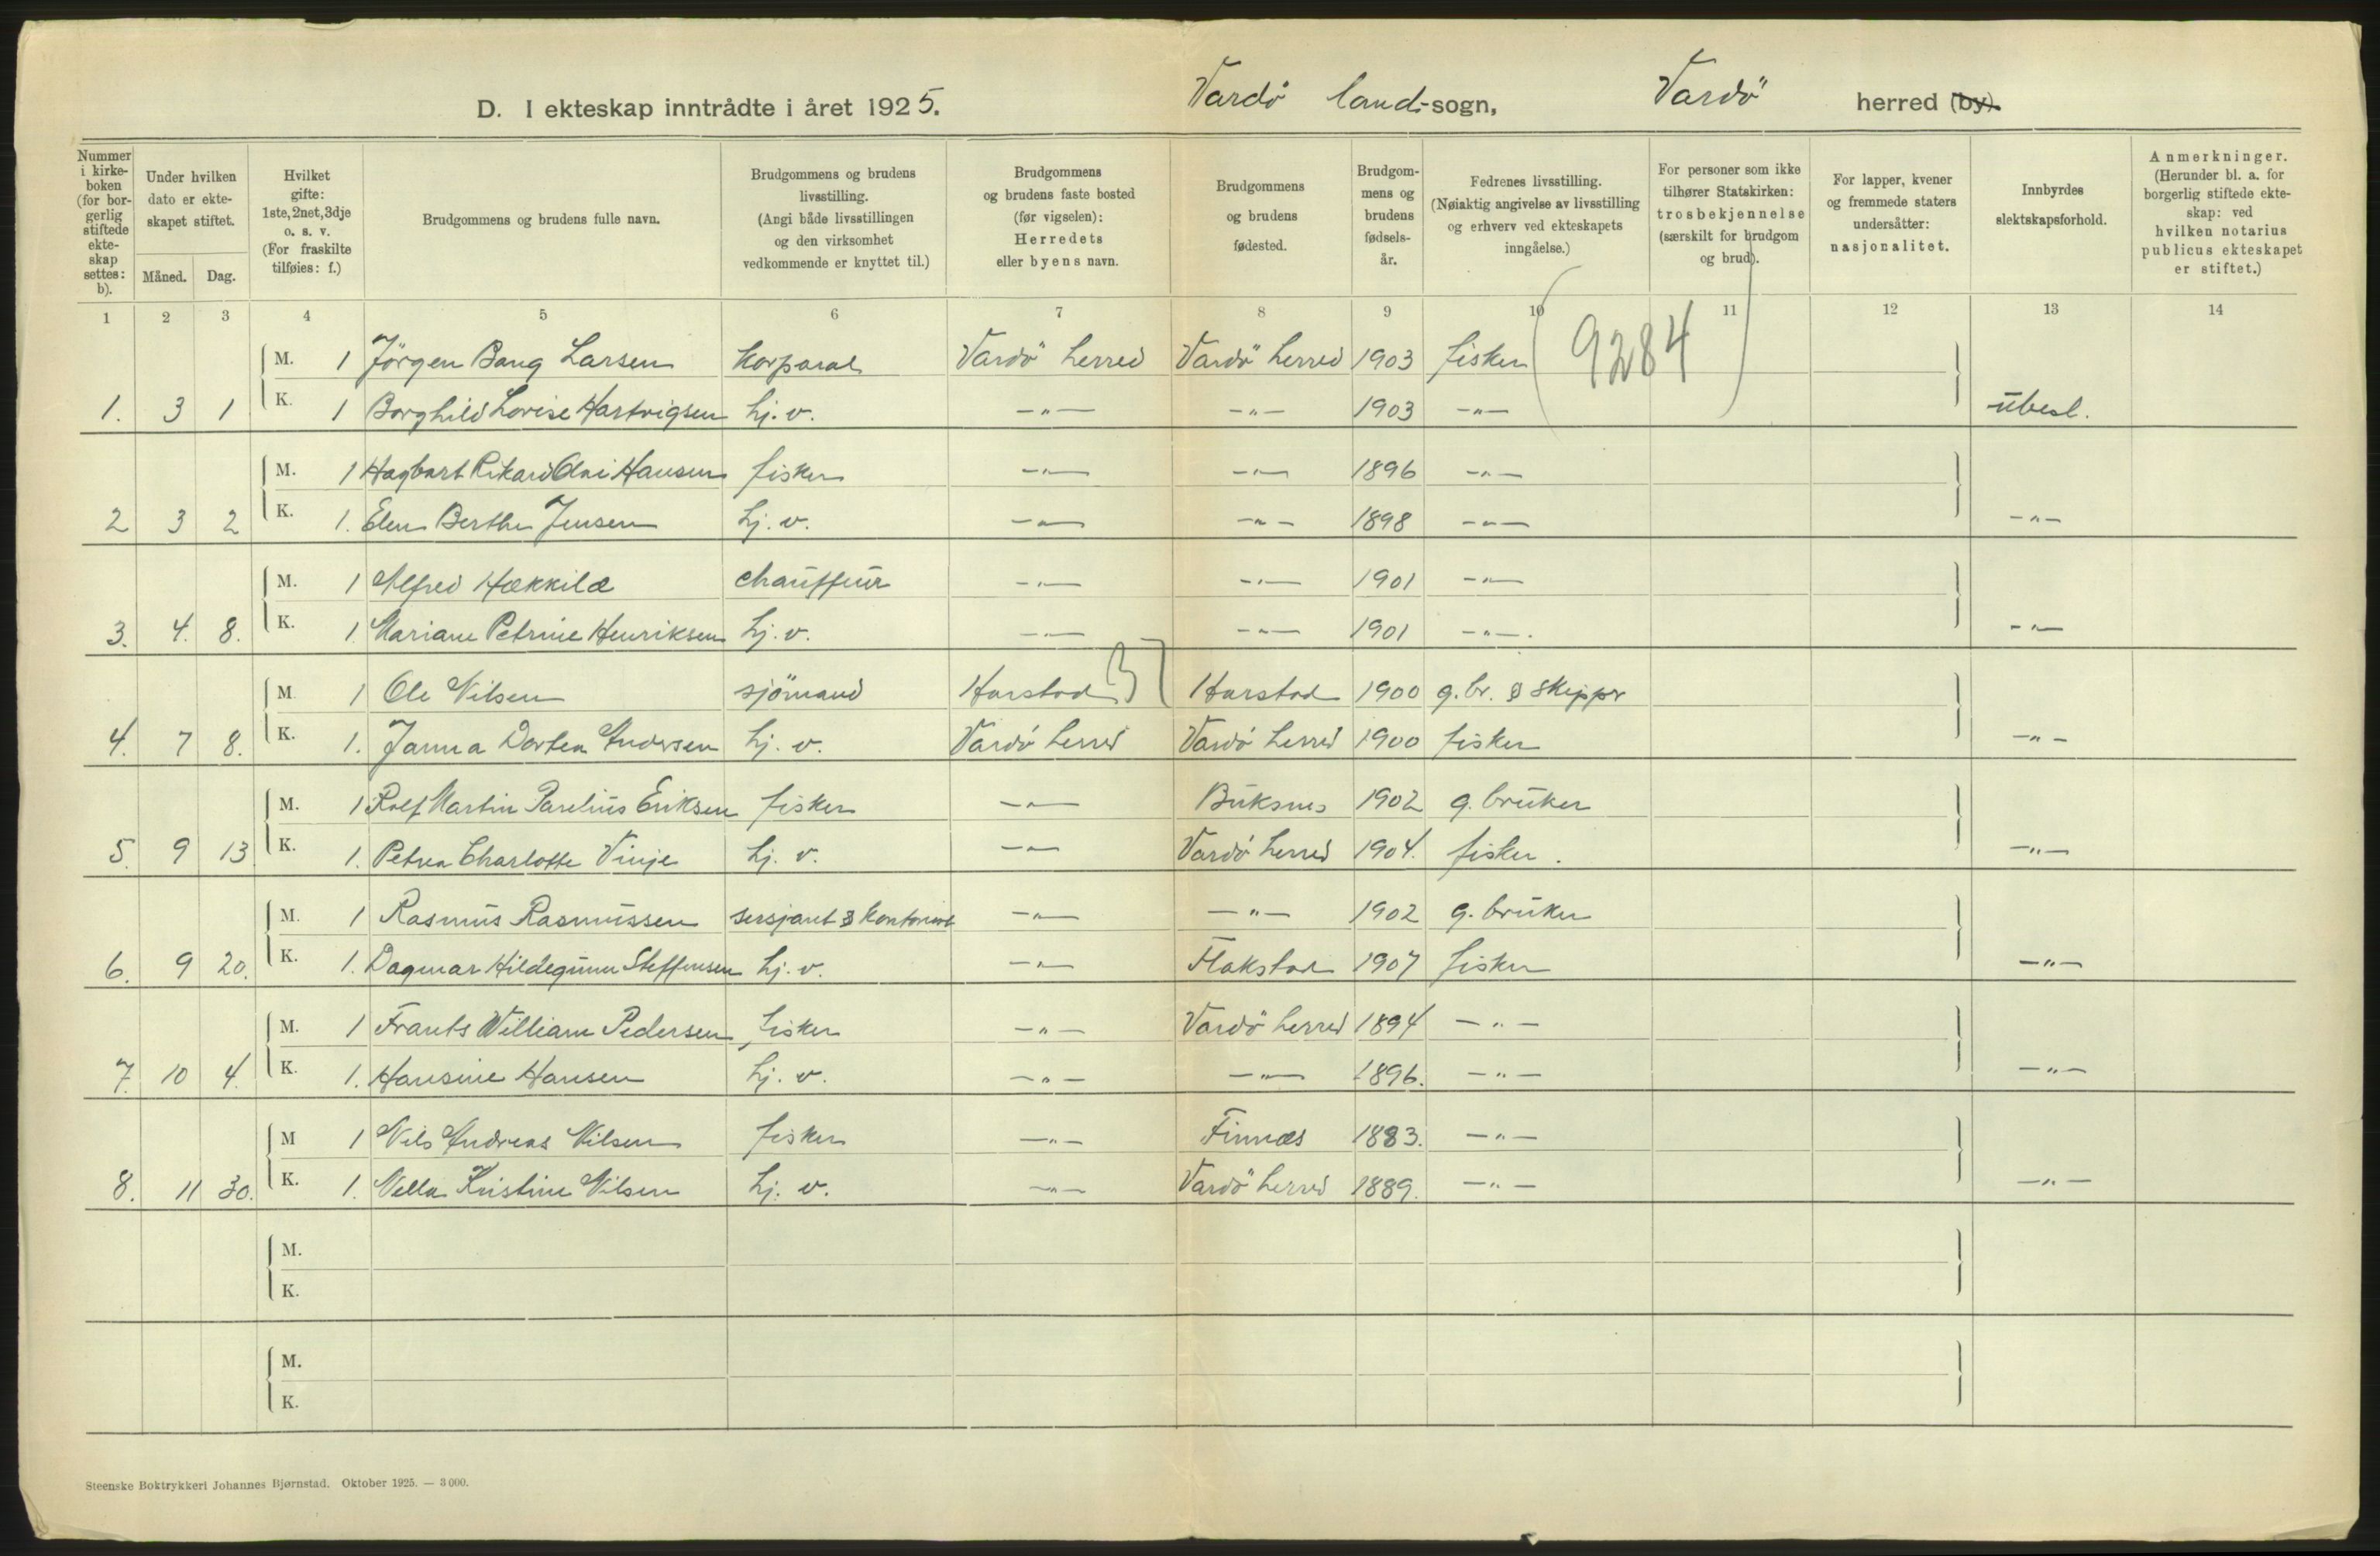 D. I ekteskap inntrådte i året 1925. Vardö land-sogn, Vardö herred (by).
Nummer i kirke-boken (for bor-gerlig stiftede ekte-skap settes: b).
Under hvilken dato er ekte-skapet stiftet.
Måned. Dag.
Hvilket gifte: 1ste, 2net, 3dje o. s. v. (For fraskilte tilføies: f.)
Brudgommens og brudens fulle navn.
Brudgommens og brudens livsstilling. (Angi både livsstillingen og den virksomhet vedkommende er knyttet til.)
Brudgommens og brudens faste bosted (før vigselen): Herredets eller byens navn.
Brudgommens og brudens fødested.
Brudgom-mens og brudens fødsels-år.
Fedrenes livsstilling. (Nøiaktig angivelse av livsstilling og erhverv ved ekteskapets inngåelse.)
For personer som ikke tilhører Statskirken: trosbekjennelse (særskilt for brudgom og brud).
For lapper, kvener og fremmede staters undersåtter: nasjonalitet.
Innbyrdes slektskapsforhold.
Anmerkninger. (Herunder bl. a. for borgerlig stiftede ekte-skap: ved hvilken notarius publicus ekteskapet er stiftet.)
1 2 3 4 5 6 7 8 9 10 11 12 13 14
M. 1 Jörgen Bang Larsen korporal Vardö herred Vardö herred 1903 fisker (9284)
1. 3 1 K. 1 Borghild Lovise Hartvigsen hj. v. —"— —"— 1903 —"— ubesl.
M. 1 Hagbart Rikard Olai Hansen fisker —"— —"— 1896 —"—
2 3 2 K. 1. Elen Berthe Jensen hj. v. —"— —"— 1898 —"— —"—
M. 1 Alfred Hækkilæ chauffeur —"— —"— 1901 —"—
3. 4. 8. K. 1. Mariane Petrine Henriksen hj. v. —"— —"— 1901 —"—. —"—
M 1 Ole Nilsen sjömand Harstad Harstad 1900 g.br. & skipper
4. 7 8. K. 1. Janna Dortea Andersen hj. v. Vardö herred Vardö herred 1900 fisker —"—
M. 1 Rolf Martin Parelius Eriksen fisker —"— Buksnes 1902 g. bruker
5. 9 13 K. 1. Petrea Charlotte Vinje hj. v. —"— Vardö herred 1904. fisker. —"—
M. 1 Rasmus Rasmussen sersjant & kontorist —"— —"— 1902 g. bruker
6. 9 20. K. 1. Dagmar Hildegunn Steffensen hj. v. —"— Flakstad 1907 fisker —"—
M. 1 Frants William Pedersen fisker —"— Vardö herred 1894 —"—
7. 10 4. K. 1. Hansine Hansen hj. v. —"— —"— 1896. —"— —"—
M 1 Nils Andreas Nilsen fisker —"— Finnæs 1883. —"—
8. 11 30. K. 1. Nella Kristine Nilsen hj. v. —"— Vardö herred 1889. —"— —"—
M.
K.
M.
K.
Steenske Boktrykkeri Johannes Bjørnstad. Oktober 1925. — 3 000.